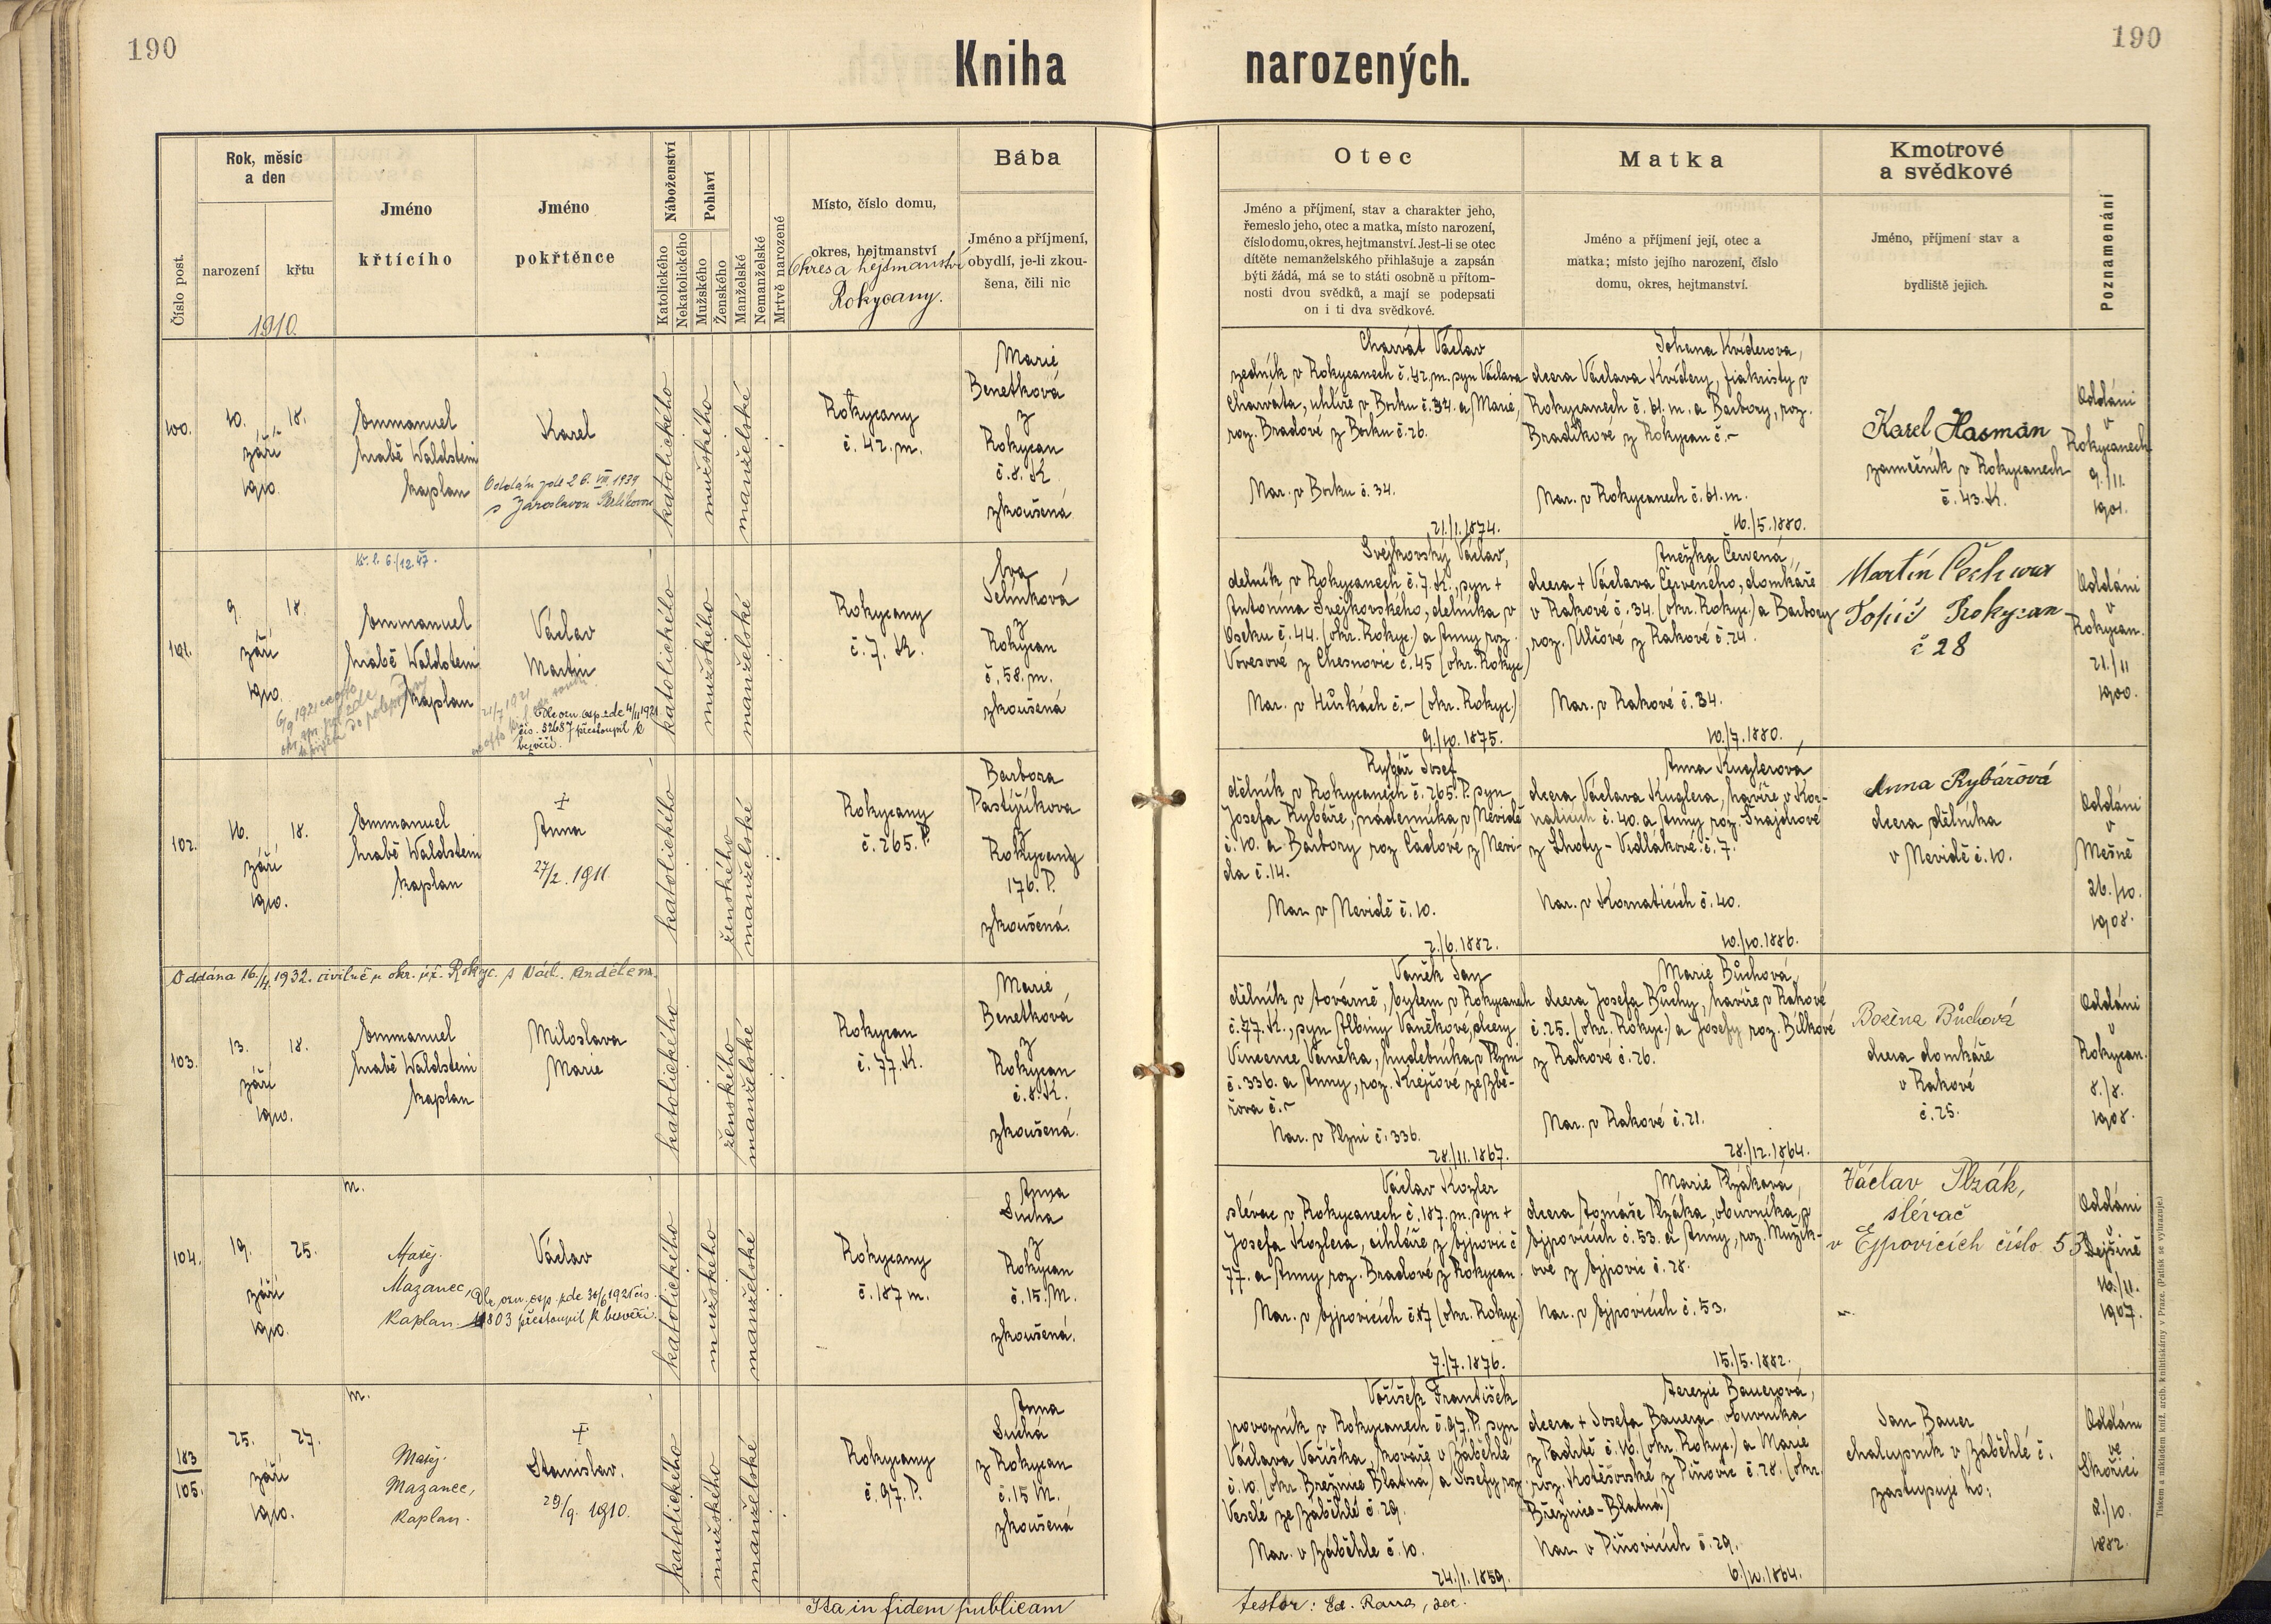 190
Kniha
narozených.
190
Číslo post.
Rok, měsíc
a den
narození
křtu
1910.
Jméno
křtícího
Jméno
pokřtěnce
Náboženství
Katolického
Nekatolického
Pohlaví
Mužského
Ženského
Manželské
Nemanželské
Mrtvě narozené
Místo, číslo domu,
okres, hejtmanství
Okres a hejtmanství
Rokycany.
Bába
Jméno a příjmení,
obydlí, je-li zkou-
šena, čili nic
Otec
Jméno a příjmení, stav a charakter jeho,
řemeslo jeho, otec a matka, místo narození,
číslo domu, okres, hejtmanství. Jest-li se otec
dítěte nemanželského přihlašuje a zapsán
býti žádá, má se to státi osobně u přítom-
nosti dvou svědků, a mají se podepsati
on i ti dva svědkové.
Matka
Jméno a příjmení její, otec a
matka; místo jejího narození, číslo
domu, okres, hejtmanství.
Kmotrové
a svědkové
Jméno, příjmení stav a
bydliště jejich.
Poznamenání
100.
10.
září
1910.
18.
Emmanuel
hrabě Waldstein
kaplan
Karel
Oddán zde 26. VIII. 1939
s Jaroslavou
katolického
mužského
manželské
Rokycany
č. 42. m.
Marie
Benetková
z
Rokycan
č. 8. K
zkoušená
Charvát Václav
zedník v Rokycanech č. 42. m. syn Václava
Charváta, uhlíře v Borku č. 34. a Marie,
roz. Bradové z Borku č. 26.
Nar. v Borku č. 34.
21./1. 1874.
Johana Kviderova,
dcera Václava Kvidery, fiakristy v
Rokycanech č. 61. m. a Barbory, roz.
Bradíkové z Rokycan č. –
Nar. v Rokycanech č. 61. m.
16./5. 1880.
Karel Hasman
zamečník v Rokycanech
č. 43. K.
Oddáni
v
Rokycanech
9./11.
1901.
101.
9.
září
1910.
18.
Kř. l. 6./12. 47.
Emmanuel
hrabě Waldstein
kaplan
Václav
Martin
Dle ozn. osp. zde 4/11 1921
čís. 32687 přestoupil k
bezvěří.
katolického
mužského
manželské
Rokycany
č. 7. K.
Eva
Selínková
z
Rokycan
č. 58. m.
zkoušená
Svejkovský Václav,
dělník v Rokycanech č. 7. K., syn +
Antonína Svejkovského, dělníka v
Oseku č. 44. (okr. Rokyc.) a Anny roz.
Vovesové z Chesnovic č. 45 (okr. Rokyc.)
Nar. v Hůrkách č. – (okr. Rokyc.)
9./10. 1875.
Anežka Červená,
dcera + Václava Červeného, domkáře
v Rakové č. 34. (okr. Rokyc.) a Barbory
roz. Ulčové z Rakové č. 24.
Nar. v Rakové č. 34.
10./7. 1880.
Martín Čechura
Topič Rokycan
č 28
Oddáni
v
Rokycan.
21./11
1900.
102.
16.
září
1910.
18.
Emmanuel
hrabě Waldstein
kaplan
+
Anna
27/2. 1911
katolického
ženského
manželské
Rokycany
č. 265. P.
Barbora
Pastýříkova
z
Rokycany
176. P.
zkoušená.
Rybář Josef
dělník v Rokycanech č. 265. P. syn
Josefa Rybáře, nádenníka v Nevidě
č. 10. a Barbory roz Čadové z Nevi-
da č. 14.
Nar. v Nevidě č. 10.
2./6. 1882.
Anna Kuglerová
dcera Václava Kuglera, havíře v Kor-
naticích č. 40. a Anny roz. Šnajdrové
z Lhoty - Vidlákové č. 7.
Nar. v Kornaticích č. 40.
10./10. 1886.
Anna Rybářová
dcera dělníka
v Nevidě č. 10.
Oddáni
v
Mešně
26./10.
1908.
Oddána 16./4. 1932. civilně u okr. úř. Rokyc. s Václ. Andělem.
103.
13.
září
1910.
18.
Emmanuel
hrabě Waldstein
kaplan
Miloslava
Marie
katolického
ženského
manželské
Rokycan
č. 77. K.
Marie
Benetková
z
Rokycan
č. 8. K.
zkoušená.
Vaněk Jan
dělník v továrně, bytem v Rokycanech
č. 77. K., syn Albiny Vaněkové, dcery
Vincence Vaněka, hudebníka v Plzni
č. 336. a Anny, roz. Krejčové ze Zbi-
rova č. –
Nar. v Plzni č. 336.
28./11. 1867.
Marie Bůchová,
dcera Josefa Bůchy, havíře v Rakové
č. 25. (okr. Rokyc.) a Josefy roz. Bílkové
z Rakové č. 26.
Nar. v Rakové č. 21.
28./12. 1864.
Božena Bůchová
dcera domkáře
v Rakové
č. 25.
Oddáni
v
Rokycan.
8./8.
1908.
104.
19.
září
1910.
25.
m.
Matěj.
Mazanec,
Kaplan.
Václav
Dle ozn. osp. zde 30/6 1921 čís.
přestoupil k bezvěří.
katolického
mužského
manželské
Rokycany
č. 187 m.
Anna
Suchá
z
Rokycan
č. 15. M.
zkoušená.
Václav Kozler
slévač v Rokycanech č. 187. m. syn +
Josefa Kozlera, cihláře z Ejpovic č
77. a Anny roz. Bradové z Rokycan.
Nar. v Ejpovicích č. 87 (okr. Rokyc.)
7./7. 1876.
Marie Plzáková,
dcera Tomáše Plzáka, obuvníka, v
Ejpovicích č. 53. a Anny, roz. Mužík-
ové z Ejpovic č. 28.
Nar. v Ejpovicích č. 53.
15./5. 1882.
Václav Plzák,
slévač
v Ejpovicích číslo 53
Oddáni
v
Dejšině
16./11.
1907.
183
105.
25.
září
1910.
27.
m.
Matěj.
Mazanec,
Kaplan.
+
Stanislav.
29/9. 1910.
katolického
mužského
manželské
Rokycany
č. 97. P.
Anna
Suchá
z Rokycan
č. 15 M.
zkoušená
Voříšek František
povozník v Rokycanech č. 97. P. syn
Václava Voříška, kováře v Záběhlé
č. 10. (okr. Březnice Blatná) a Josefy roz.
Veselé ze Záběhlé č. 29.
Nar. v Záběhle č. 10.
24./1. 1859.
Terezie Bauerová,
dcera + Josefa Bauera obuvníka
z Padrtě č. 16. (okr. Rokyc.) a Marie
roz. Kotěšovské z Piňovic č. 28. (okr.
Březnice - Blatná)
Nar. v Piňovicích č. 29.
6./10. 1864.
Jan Bauer
chalupník v Záběhlé č.
zastupuje ho:
Oddáni
ve
Skořici
2./10.
1882.
Ita in fidem publicam
testor:
Tiskem a nákladem kníž. arcib. knihtiskárny v Praze. (Patisk se vyhrazuje.)